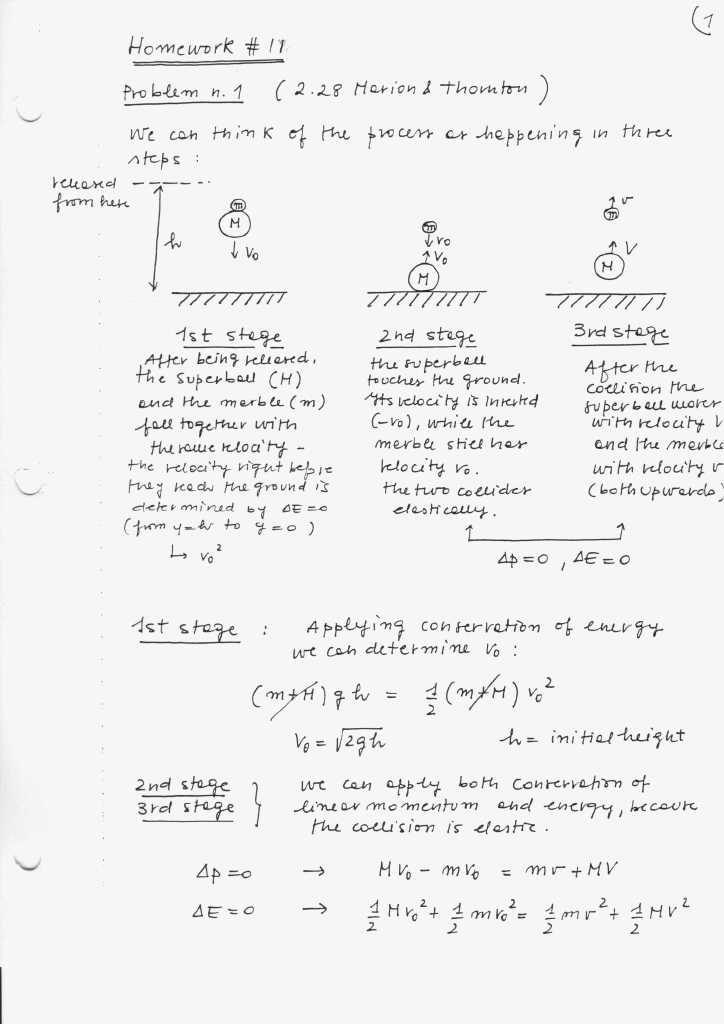 (1
Homework # 11
Problem n. 1 ( 2.28 Marion & Thornton )
We can think of the process as happening in three
steps :
released
from here
h
m
M
v₀
m
v₀
v₀
M
v
m
V
M
1st stage
After being released,
the superball (M)
and the marble (m)
fall together with
the same velocity –
the velocity right before
they reach the ground is
determined by ΔE=0
(from y=h to y=0)
↳ v₀²
2nd stage
the superball
touches the ground.
Its velocity is inverted
(-v₀), while the
marble still has
velocity v₀.
the two collides
elastically.
3rd stage
After the
collision the
superball moves
with velocity V
and the marble
with velocity v
(both upwards)
Δp=0 , ΔE=0
1st stage : Applying conservation of energy
we can determine v₀ :
(m+M) g h = 1/2 (m+M) v₀²
v₀ = √2gh h = initial height
2nd stage
3rd stage } we can apply both conservation of
linear momentum and energy, because
the collision is elastic.
Δp=0 → Mv₀ - mv₀ = mv + MV
ΔE=0 → 1/2 Mv₀² + 1/2 mv₀² = 1/2 mv² + 1/2 MV²